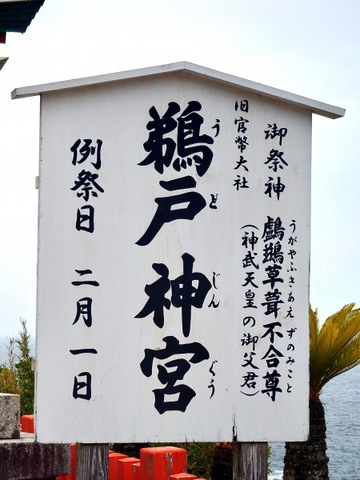 御祭神 鸕鷀草葺不合尊
うがやふきあえ ずのみこと
(神武天皇の御父君)
旧官幣大社
鵜戸神宮
うど じんぐう
例祭日 二月一日